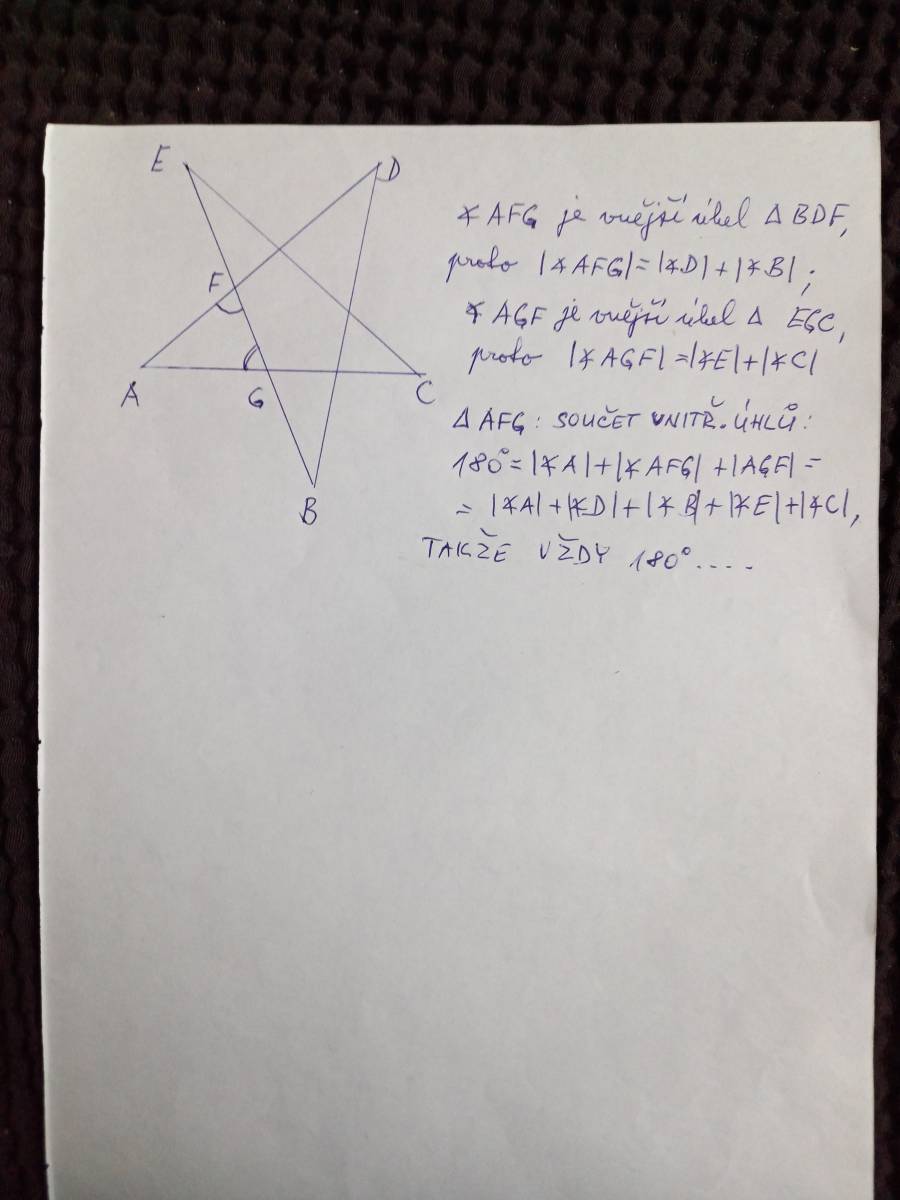 E
D
F
A
G
C
B
∢ AFG je vnější úhel Δ BDF,
proto |∢ AFG| = |∢D| + |∢B| ;
∢ AGF je vnější úhel Δ EGC,
proto |∢AGF| = |∢E| + |∢C|
Δ AFG : SOUČET VNITŘ. ÚHLŮ :
180° = |∢A| + |∢AFG| + |AGF| =
= |∢A| + |∢D| + |∢B| + |∢E| + |∢C|,
TAKŽE VŽDY 180° ....